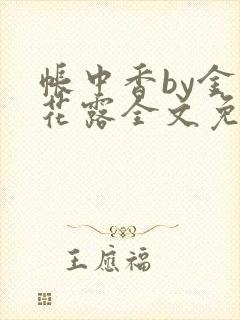 帐中香by金
花露全文免
王应福